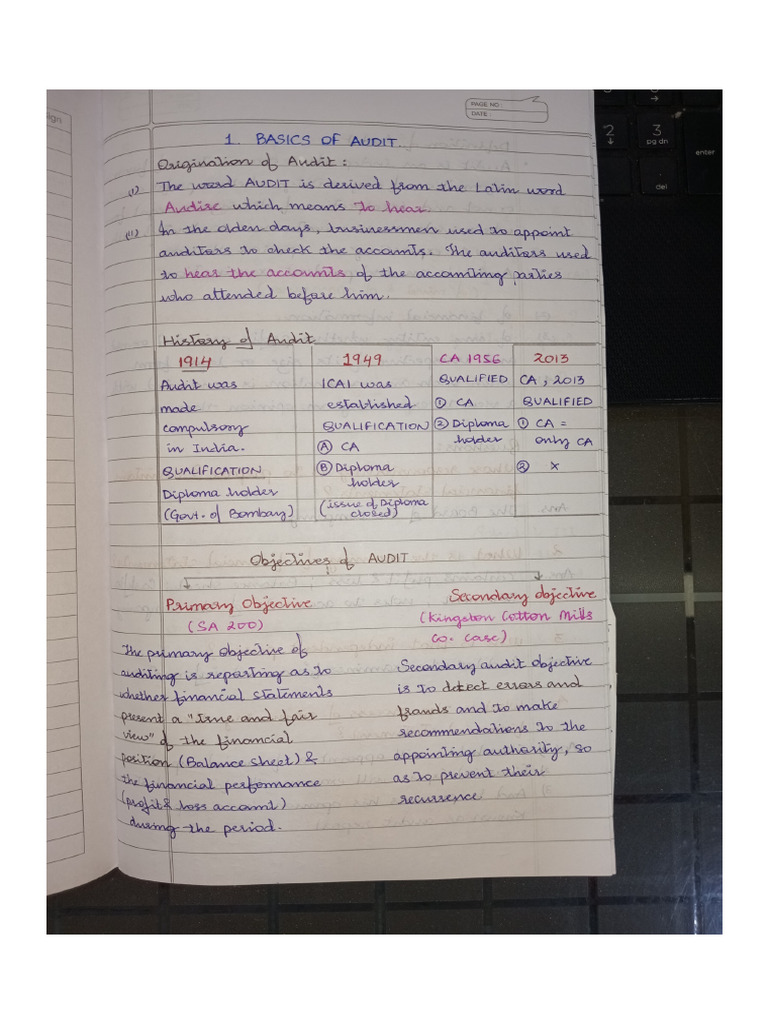 PAGE NO :
DATE :
1. BASICS OF AUDIT.
Origination of Audit :
(i) The word AUDIT is derived from the Latin word
Audire which means to hear.
(ii) In the olden days, businessmen used to appoint
auditors to check the accounts. The auditors used
to hear the accounts of the accounting parties
who attended before him.
History of Audit
1914
Audit was
made
compulsory
in India.
QUALIFICATION
Diploma holder
(Govt. of Bombay)
1949
ICAI was
established
QUALIFICATION
Ⓐ CA
Ⓑ Diploma
holder
(issue of Diploma
closed)
CA 1956
QUALIFIED
① CA
② Diploma
holder
2013
CA, 2013
QUALIFIED
① CA =
only CA
② X
Objectives of AUDIT
Primary Objective
(SA 200)
The primary objective of
auditing is reporting as to
whether financial statements
present a "true and fair
view" of the financial
position (Balance sheet) &
the financial performance
(profit & loss account)
during the period.
Secondary objective
(Kingston Cotton Mills
Co. case)
Secondary audit objective
is to detect errors and
frauds and to make
recommendations to the
appointing authority, so
as to prevent their
recurrence
2
↓
3
pg dn
enter
del